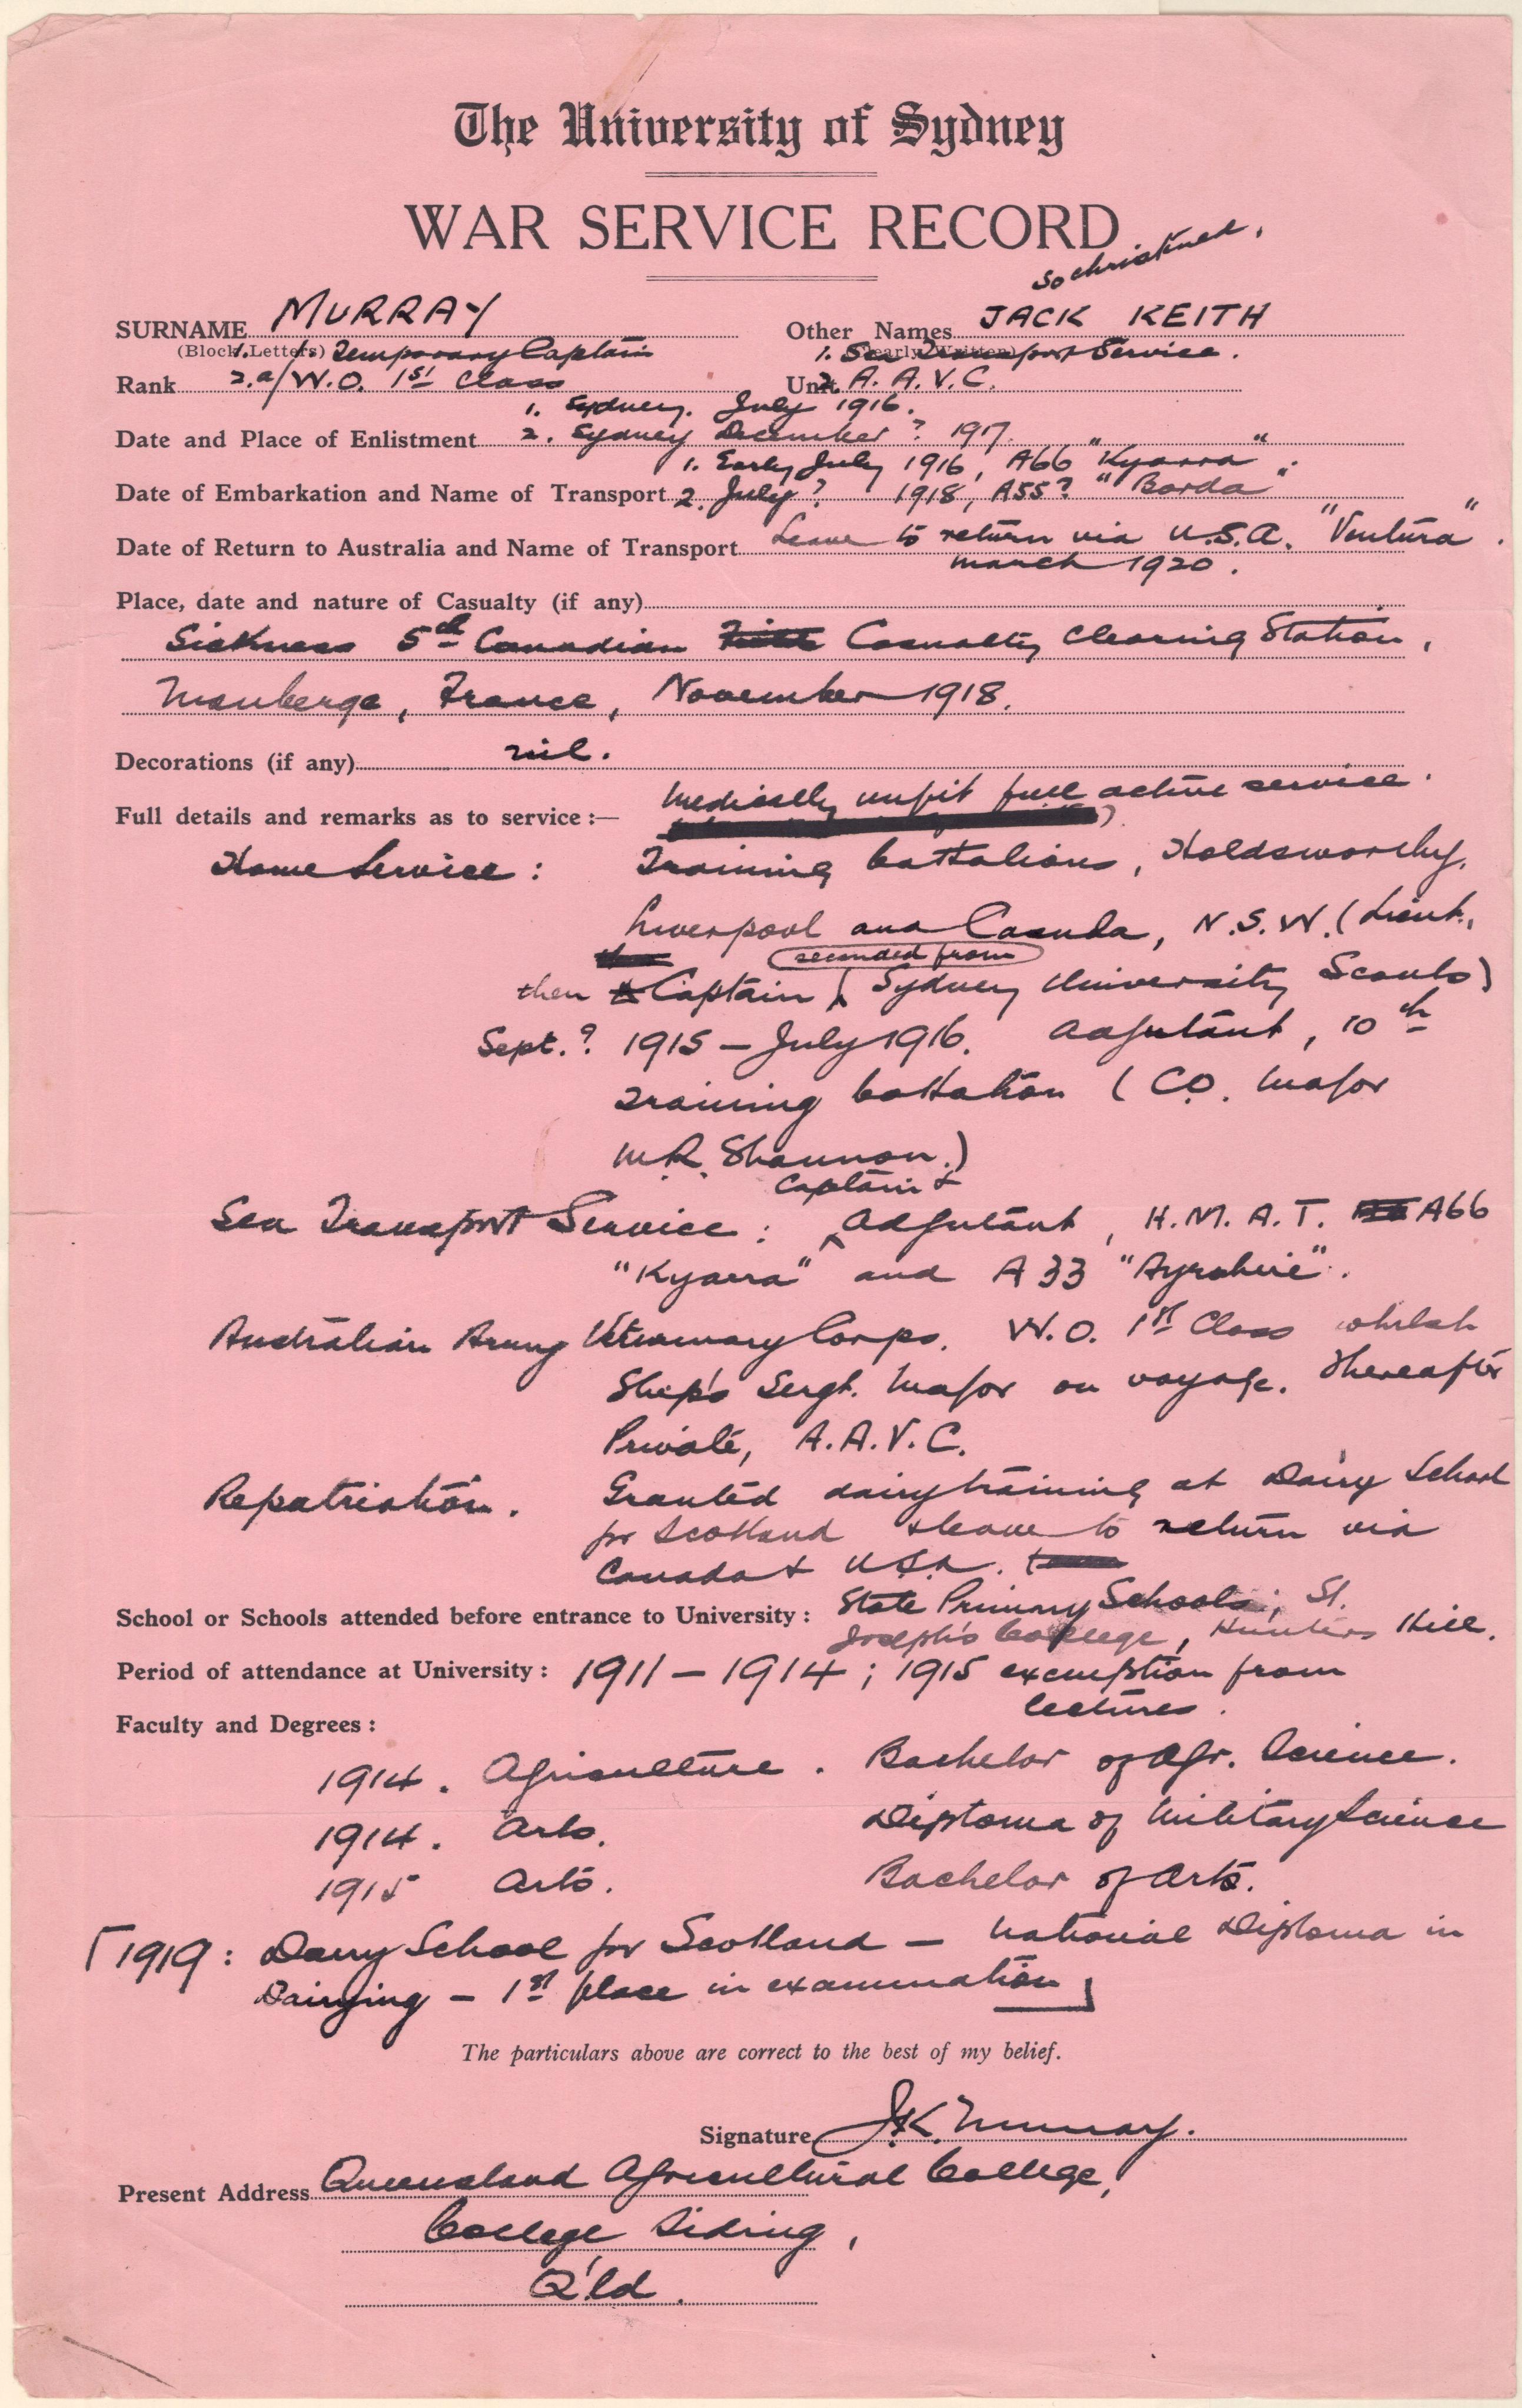 The University of Sydney
WAR SERVICE RECORD
so christened.
SURNAME MURRAY Other Names JACK KEITH
(Block Letters) 1. Temporary Captain 1. Sea Transport Service.
Rank 2. a/W.O. 1st Class Unit 2. A. A. V. C.
1. Sydney. July 1916.
Date and Place of Enlistment 2. Sydney December ? 1917.
1. Early July 1916, A66 "Kyarra".
Date of Embarkation and Name of Transport 2. July? 1918, A55? "Borda"
Date of Return to Australia and Name of Transport Leave to return via U.S.A. "Ventura".
March 1920.
Place, date and nature of Casualty (if any)
Sickness 5th Canadian Casualty Clearing Station,
Mauberge, France, November 1918.
Decorations (if any) nil.
Medically unfit full active service.
Full details and remarks as to service :—
Home Service : Training battalions, Holdsworthy,
Liverpool and Casula, N.S.W. (Lieut.,
seconded from
then Captain ( Sydney University Scouts)
Sept. ? 1915 – July 1916. Adjutant, 10th
Training battalion (C.O. Major
M.R. Shannon.)
Captain &
Sea Transport Service : Adjutant, H.M.A.T. A66
"Kyarra" and A33 "Ayrshire".
Australian Army Veterinary Corps. W.O. 1st Class whilst
Ship's Sergt. Major on voyage. Thereafter
Private, A.A.V.C.
Repatriation. Granted dairy training at Dairy School
for Scotland & leave to return via
Canada & U.S.A.
School or Schools attended before entrance to University : State Primary Schools; St.
Joseph's College, Hunters Hill.
Period of attendance at University : 1911 – 1914 ; 1915 exemption from
lectures.
Faculty and Degrees :
1914. Agriculture. Bachelor of Agr. Science.
1914. Arts. Diploma of Military Science
1915 Arts. Bachelor of Arts.
[1919 : Dairy School for Scotland – National Diploma in
Dairying – 1st place in examination]
The particulars above are correct to the best of my belief.
Signature J.K. Murray.
Present Address Queensland Agricultural College,
College Siding,
Q'ld.